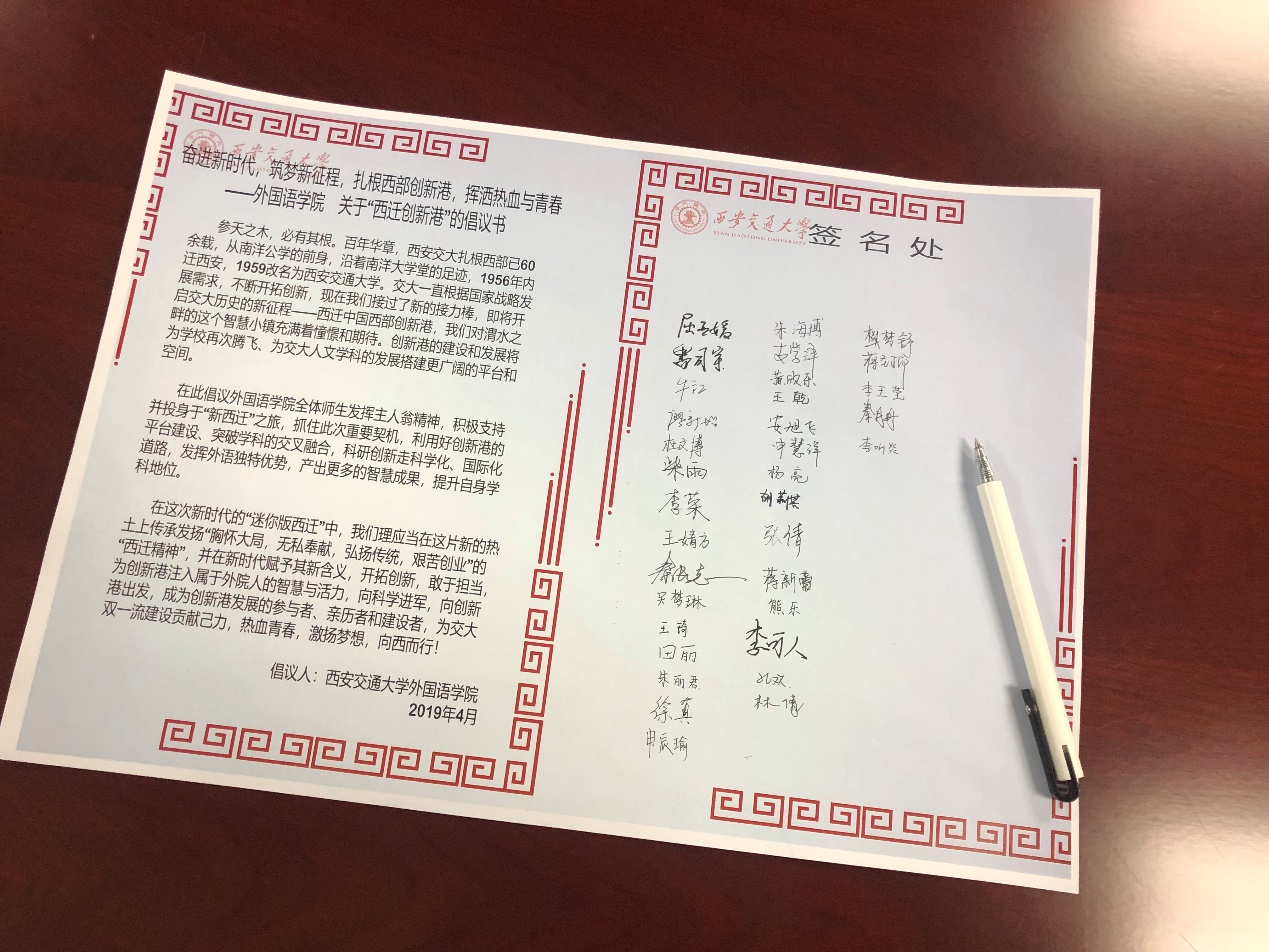 西安交通大学
奋进新时代，筑梦新征程，扎根西部创新港，挥洒热血与青春
——外国语学院 关于“西迁创新港”的倡议书
参天之木，必有其根。百年华章，西安交大扎根西部已60
余载，从南洋公学的前身，沿着南洋大学堂的足迹，1956年内
迁西安，1959改名为西安交通大学。交大一直根据国家战略发
展需求，不断开拓创新，现在我们接过了新的接力棒，即将开
启交大历史的新征程——西迁中国西部创新港，我们对渭水之
畔的这个智慧小镇充满着憧憬和期待。创新港的建设和发展将
为学校再次腾飞、为交大人文学科的发展搭建更广阔的平台和
空间。
在此倡议外国语学院全体师生发挥主人翁精神，积极支持
并投身于“新西迁”之旅，抓住此次重要契机，利用好创新港的
平台建设、突破学科的交叉融合，科研创新走科学化、国际化
道路，发挥外语独特优势，产出更多的智慧成果，提升自身学
科地位。
在这次新时代的“迷你版西迁”中，我们理应当在这片新的热
土上传承发扬“胸怀大局，无私奉献，弘扬传统，艰苦创业”的
“西迁精神”，并在新时代赋予其新含义，开拓创新，敢于担当，
为创新港注入属于外院人的智慧与活力，向科学进军，向创新
港出发，成为创新港发展的参与者、亲历者和建设者，为交大
双一流建设贡献己力，热血青春，激扬梦想，向西而行！
倡议人：西安交通大学外国语学院
2019年4月
西安交通大学
XI'AN JIAOTONG UNIVERSITY
签名处
牛江
杜文博
柴雨
李荣
王婧方
吴梦琳
王琦
田丽
朱丽君
徐真
申辰瑜
朱海博
黄欣乐
王乾
安旭飞
申慧洋
杨亮
张倩
蒋新蕾
熊乐
孔欢
林倩
樊梦舒
秦丹丹